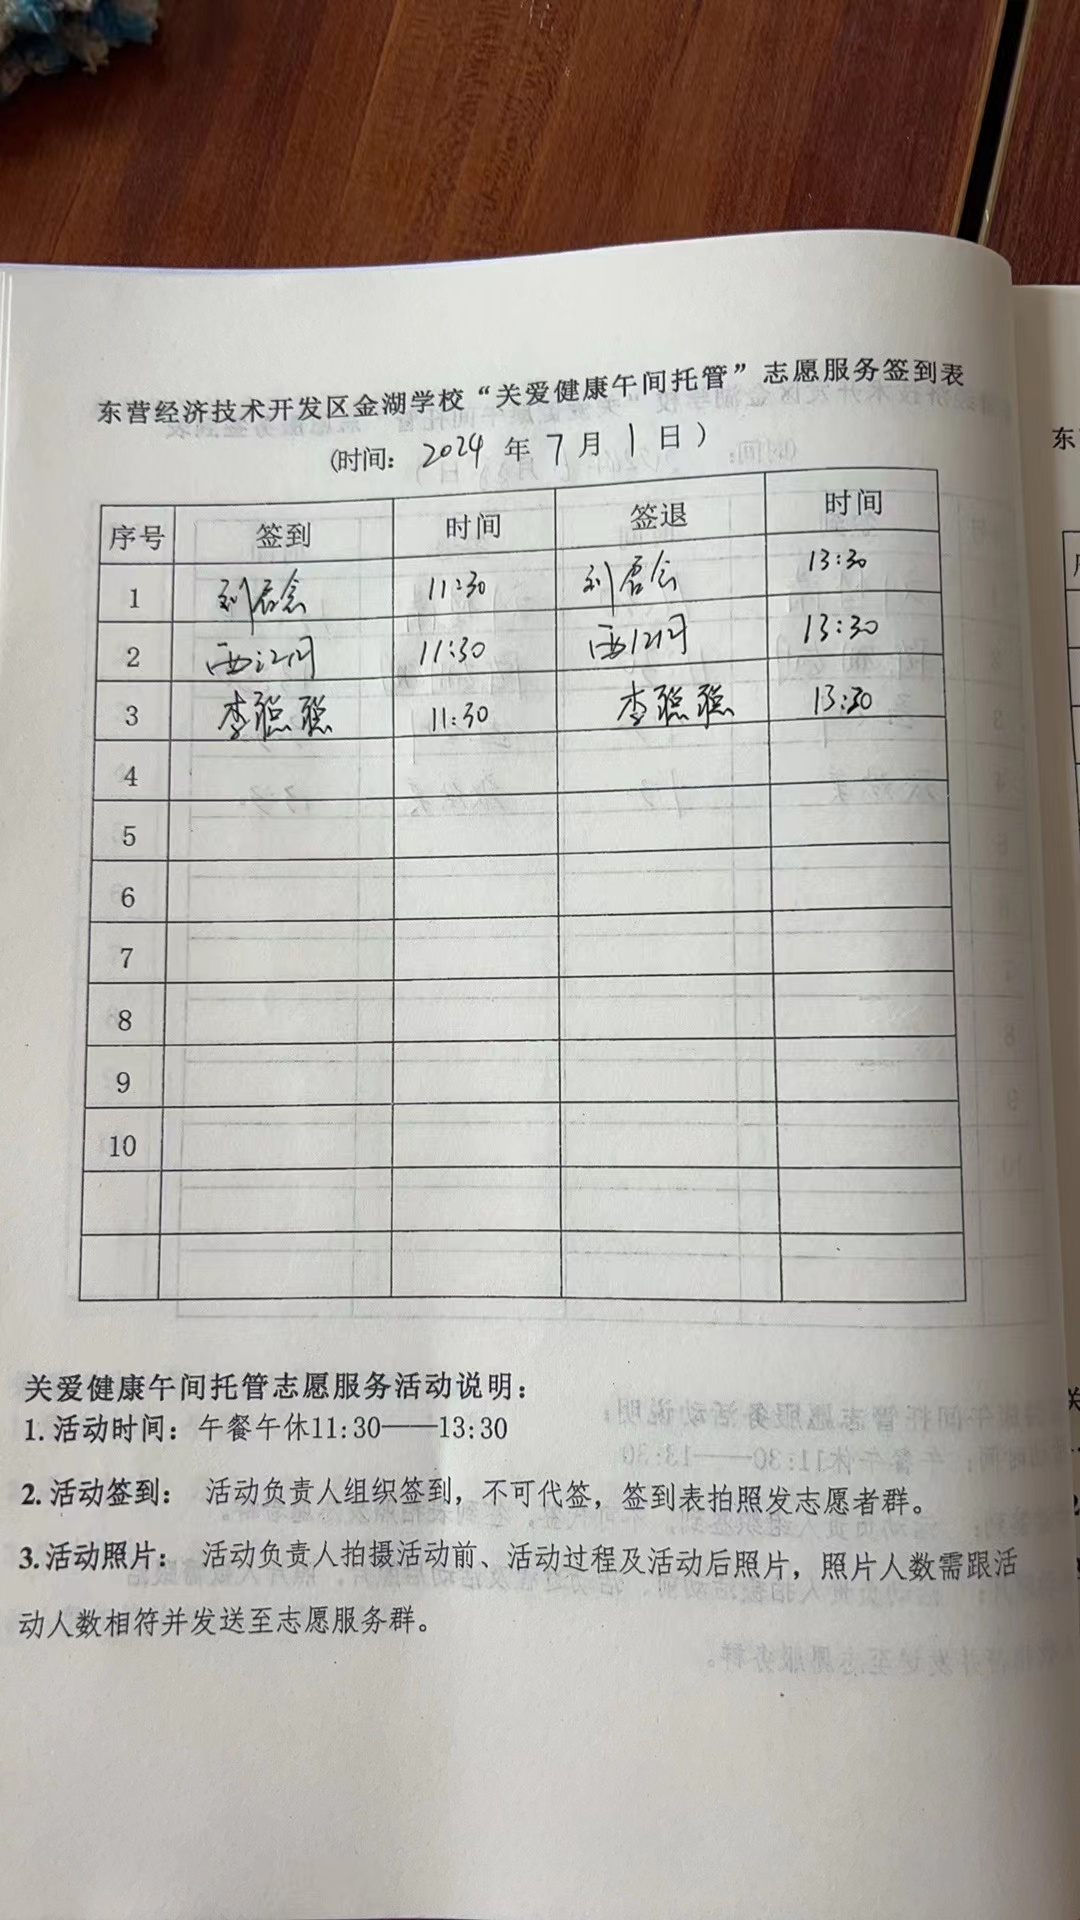 东营经济技术开发区金湖学校“关爱健康午间托管”志愿服务签到表
(时间: 2024 年 7 月 1 日)
序号 签到 时间 签退 时间
1 刘 11:30 刘 13:30
2 11:30 13:30
3 李聪聪 11:30 李聪聪 13:30
4
5
6
7
8
9
10
关爱健康午间托管志愿服务活动说明:
1. 活动时间: 午餐午休11:30——13:30
2. 活动签到: 活动负责人组织签到, 不可代签, 签到表拍照发志愿者群。
3. 活动照片: 活动负责人拍摄活动前、活动过程及活动后照片, 照片人数需跟活
动人数相符并发送至志愿服务群。
东